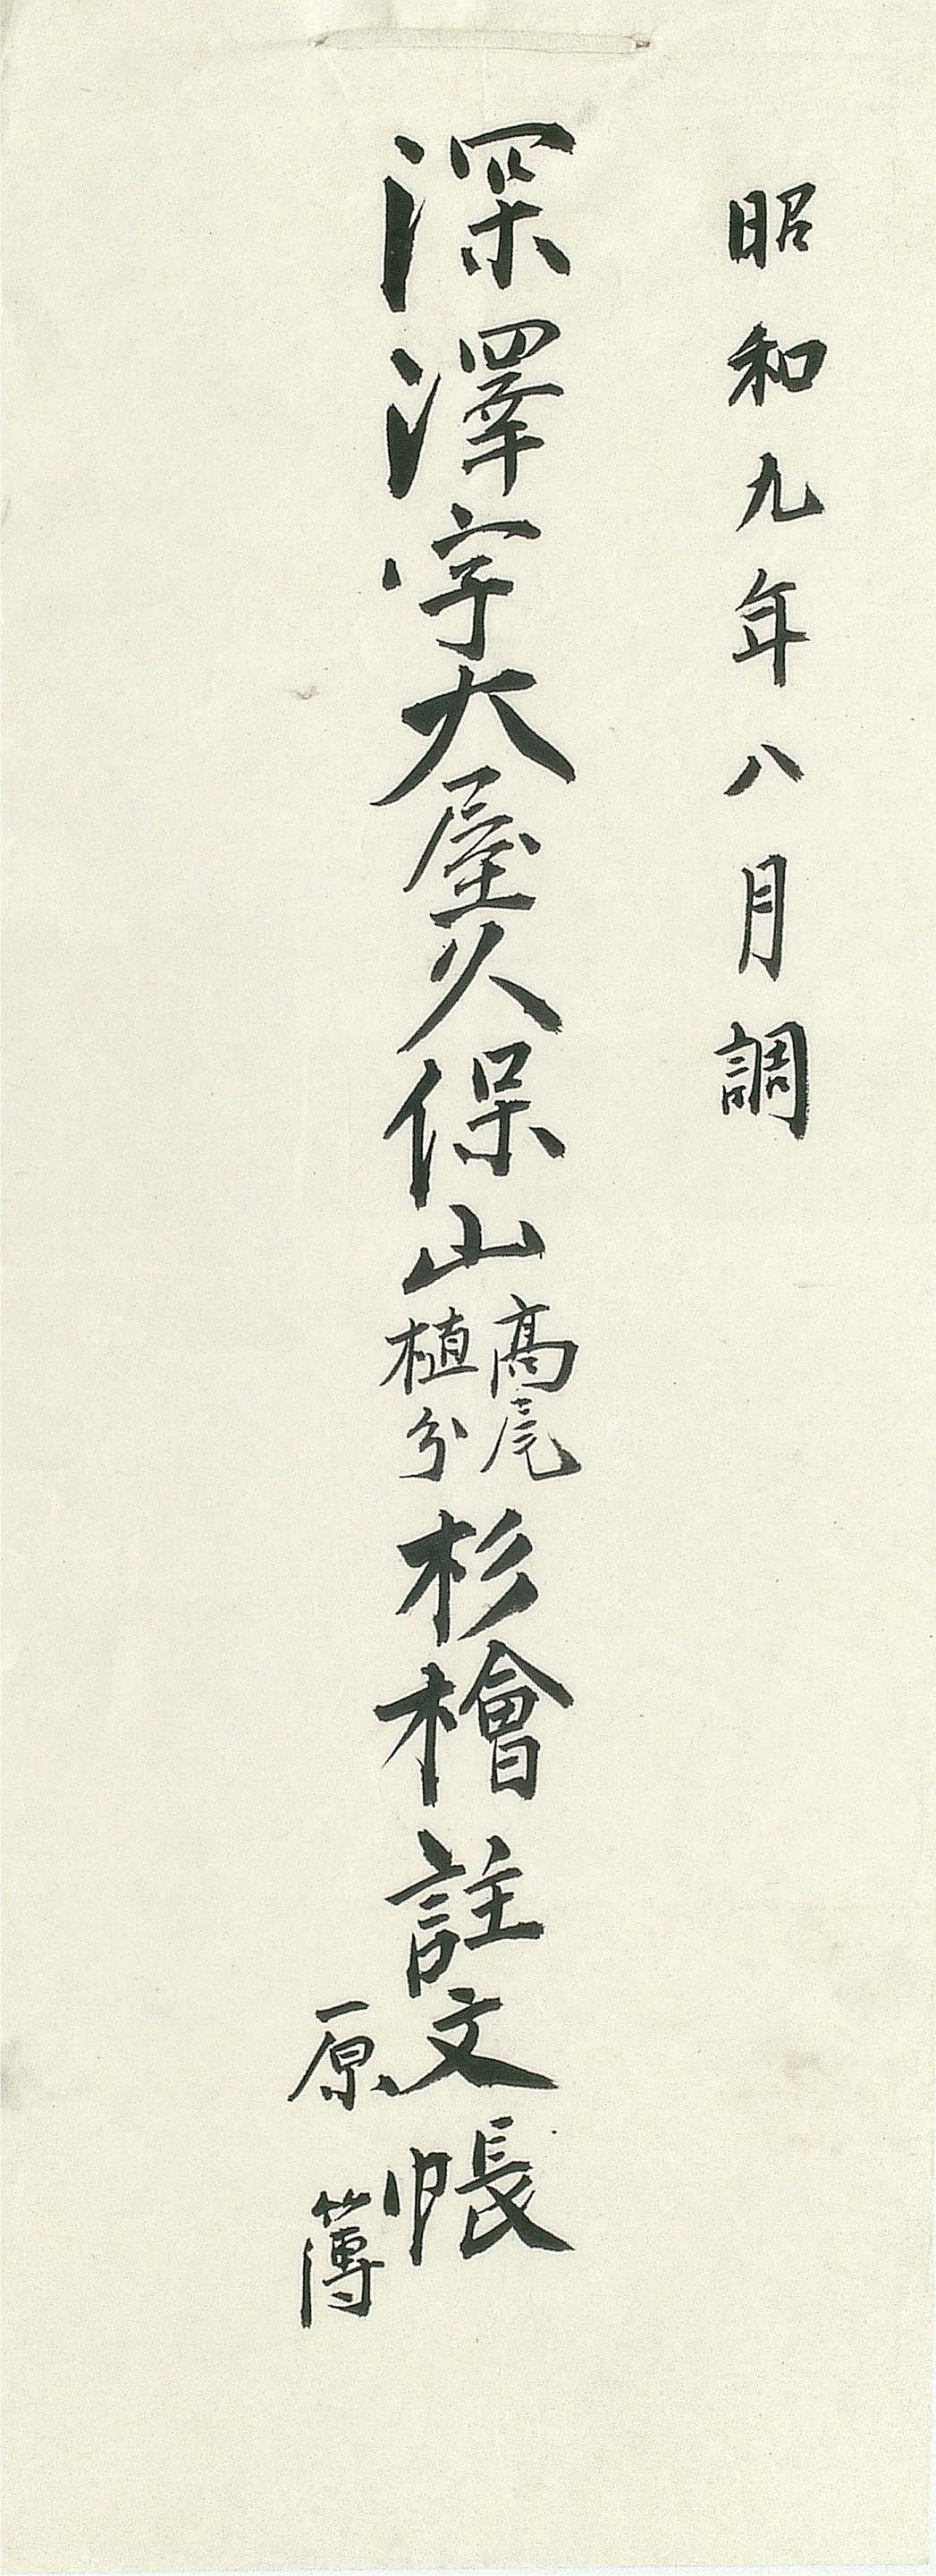 昭和九年八月調
深澤字大屋久保山
髙尾
植分
杉檜註文帳
原簿